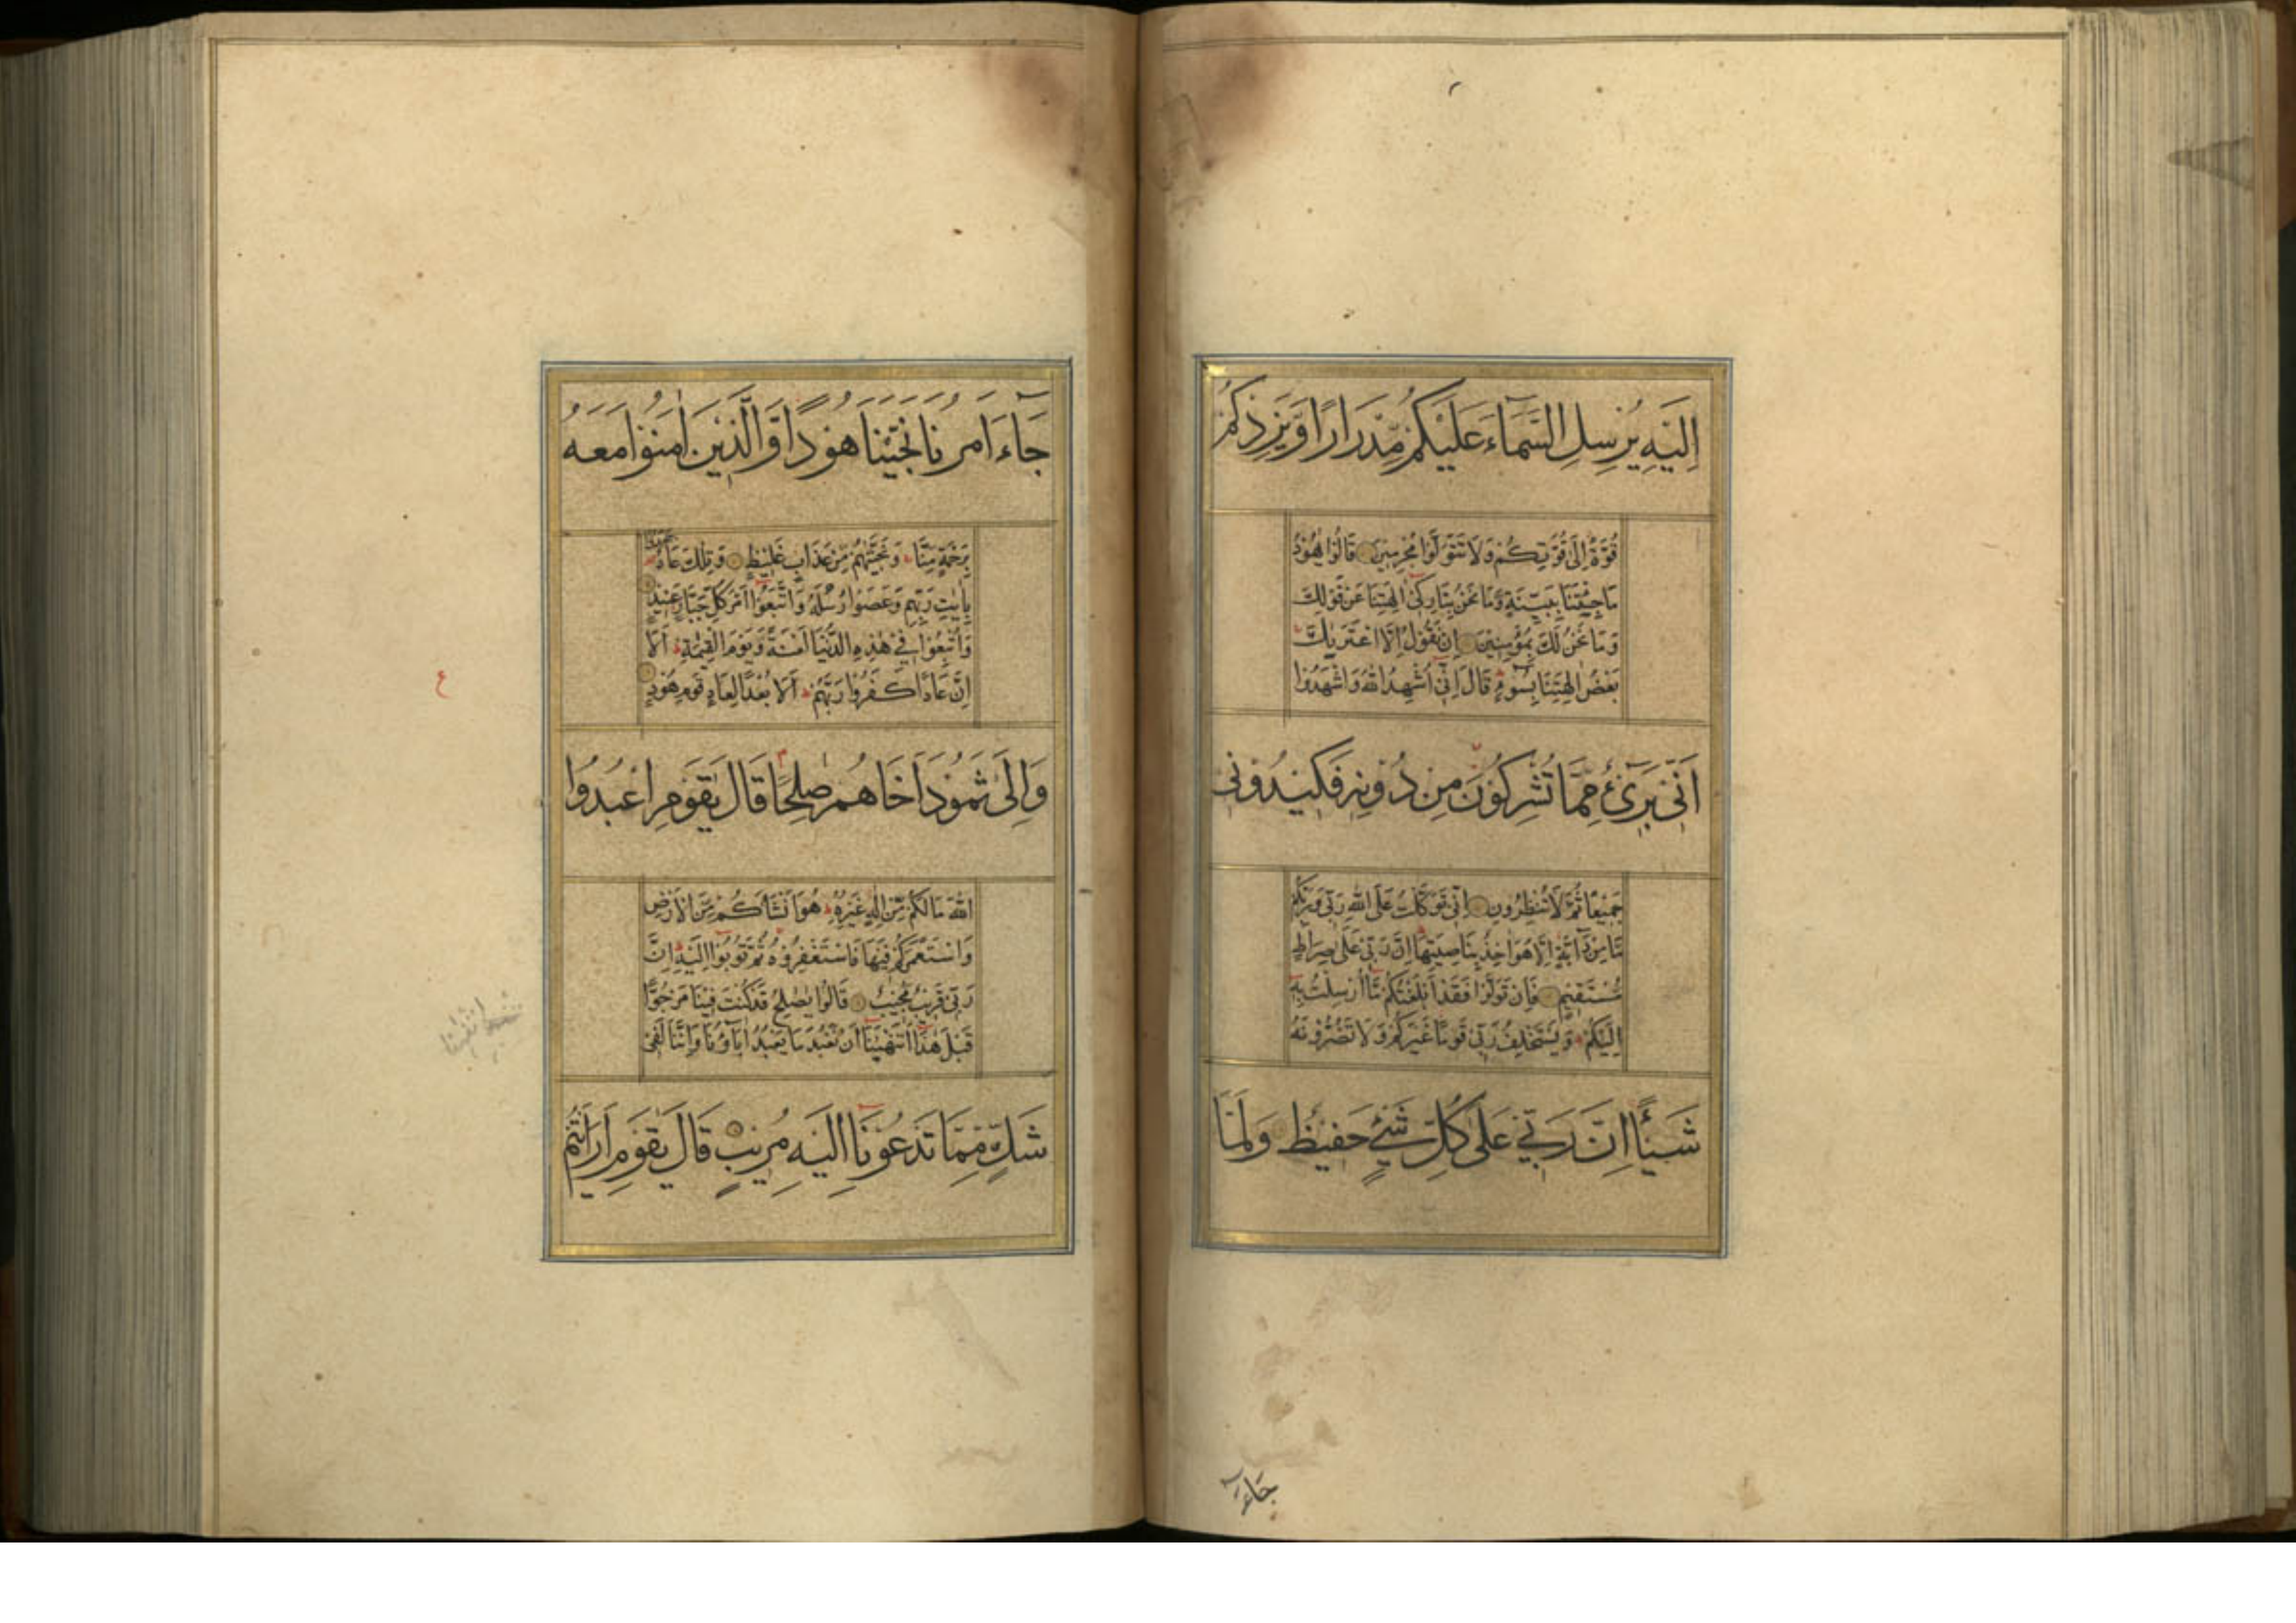 اِلَيْهِ يُرْسِلِ السَّمَآءَ عَلَيْكُمْ مِّدْرَارًا وَّيَزِدْكُمْ
قُوَّةً اِلٰى قُوَّتِكُمْ وَلَا تَتَوَلَّوْا مُجْرِمِيْنَ قَالُوْا يٰهُوْدُ
مَا جِئْتَنَا بِبَيِّنَةٍ وَّمَا نَحْنُ بِتَارِكِىْ اٰلِهَتِنَا عَنْ قَوْلِكَ
وَمَا نَحْنُ لَكَ بِمُؤْمِنِيْنَ اِنْ نَّقُوْلُ اِلَّا اعْتَرٰىكَ
بَعْضُ اٰلِهَتِنَا بِسُوْٓءٍ قَالَ اِنِّىْٓ اُشْهِدُ اللّٰهَ وَاشْهَدُوْٓا
اَنِّىْ بَرِىْٓءٌ مِّمَّا تُشْرِكُوْنَ مِنْ دُوْنِهٖ فَكِيْدُوْنِىْ
جَمِيْعًا ثُمَّ لَا تُنْظِرُوْنِ اِنِّىْ تَوَكَّلْتُ عَلَى اللّٰهِ رَبِّىْ وَرَبِّكُمْ
مَا مِنْ دَآبَّةٍ اِلَّا هُوَ اٰخِذٌ بِنَاصِيَتِهَا اِنَّ رَبِّىْ عَلٰى صِرَاطٍ
مُّسْتَقِيْمٍ فَاِنْ تَوَلَّوْا فَقَدْ اَبْلَغْتُكُمْ مَّٓا اُرْسِلْتُ بِهٖٓ
اِلَيْكُمْ وَيَسْتَخْلِفُ رَبِّىْ قَوْمًا غَيْرَكُمْ وَلَا تَضُرُّوْنَهٗ
شَيْـًٔا اِنَّ رَبِّىْ عَلٰى كُلِّ شَىْءٍ حَفِيْظٌ وَلَمَّا
جَآءَ
جَآءَ اَمْرُنَا نَجَّيْنَا هُوْدًا وَّالَّذِيْنَ اٰمَنُوْا مَعَهٗ
بِرَحْمَةٍ مِّنَّا وَنَجَّيْنٰهُمْ مِّنْ عَذَابٍ غَلِيْظٍ وَتِلْكَ عَادٌ جَحَدُوْا
بِاٰيٰتِ رَبِّهِمْ وَعَصَوْا رُسُلَهٗ وَاتَّبَعُوْٓا اَمْرَ كُلِّ جَبَّارٍ عَنِيْدٍ
وَاُتْبِعُوْا فِىْ هٰذِهِ الدُّنْيَا لَعْنَةً وَّيَوْمَ الْقِيٰمَةِ اَلَآ
اِنَّ عَادًا كَفَرُوْا رَبَّهُمْ اَلَا بُعْدًا لِّعَادٍ قَوْمِ هُوْدٍ
ع
وَاِلٰى ثَمُوْدَ اَخَاهُمْ صٰلِحًا قَالَ يٰقَوْمِ اعْبُدُوا
اللّٰهَ مَا لَكُمْ مِّنْ اِلٰهٍ غَيْرُهٗ هُوَ اَنْشَاَكُمْ مِّنَ الْاَرْضِ
وَاسْتَعْمَرَكُمْ فِيْهَا فَاسْتَغْفِرُوْهُ ثُمَّ تُوْبُوْٓا اِلَيْهِ اِنَّ
رَبِّىْ قَرِيْبٌ مُّجِيْبٌ قَالُوْا يٰصٰلِحُ قَدْ كُنْتَ فِيْنَا مَرْجُوًّا
قَبْلَ هٰذَآ اَتَنْهٰىنَآ اَنْ نَّعْبُدَ مَا يَعْبُدُ اٰبَآؤُنَا وَاِنَّنَا لَفِىْ
شَكٍّ مِّمَّا تَدْعُوْنَآ اِلَيْهِ مُرِيْبٍ قَالَ يٰقَوْمِ اَرَاَيْتُمْ